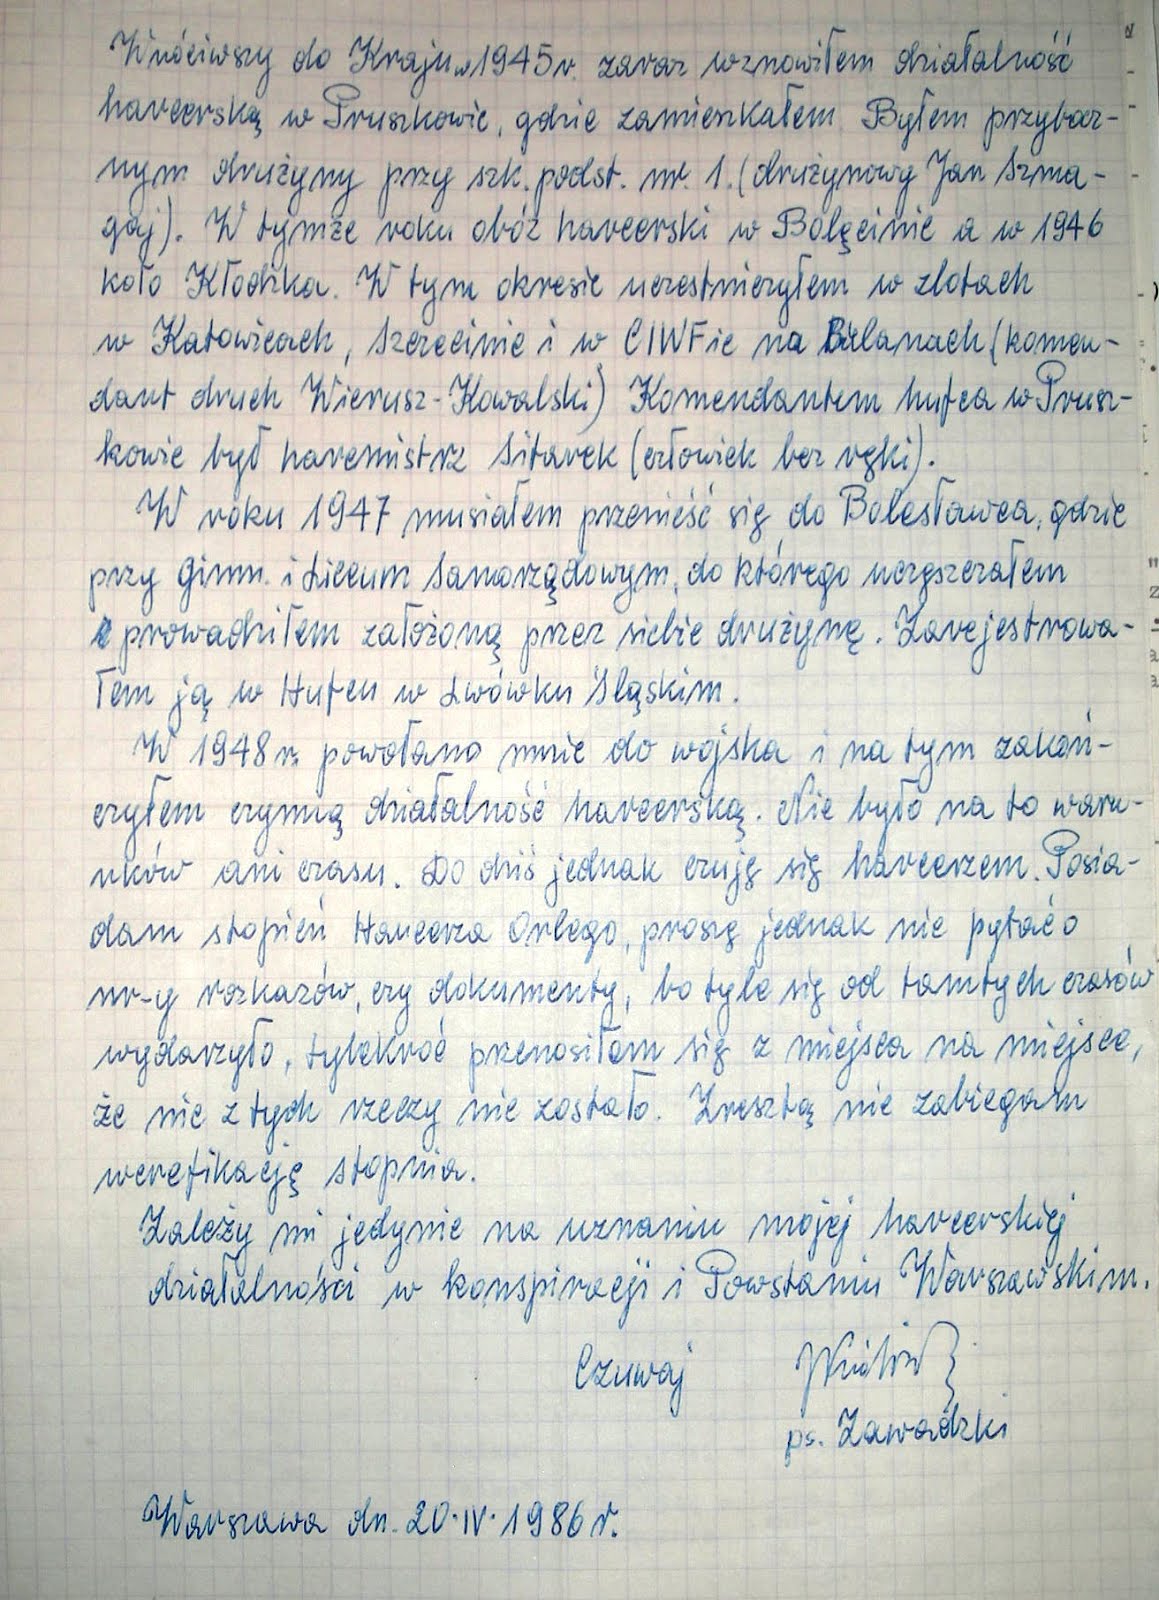 Wróciwszy do Kraju w 1945 r. zaraz wznowiłem działalność
harcerską w Pruszkowie, gdzie zamieszkałem. Byłem przybocz-
nym drużyny przy szk. podst. nr. 1. (drużynowy Jan Szma-
gaj). W tymże roku obóz harcerski w Bolęcinie a w 1946
koło Kłodzka. W tym okresie uczestniczyłem w zlotach
w Katowicach, Szczecinie i w CIWFie na Bielanach (komen-
dant druch Wierusz-Kowalski) Komendantem hufca w Prusz-
kowie był harcmistrz Sitarek (człowiek bez ręki).
W roku 1947 musiałem przenieść się do Bolesławca, gdzie
przy Gimn. i Liceum Samorządowym, do którego uczęszczałem
prowadziłem założoną przez siebie drużynę. Zarejestrowa-
łem ją w Hufcu w Lwówku Śląskim.
W 1948 r. powołano mnie do wojska i na tym zakoń-
czyłem czynną działalność harcerską. Nie było na to waru-
nków ani czasu. Do dziś jednak czuję się harcerzem. Posia-
dam stopień Harcerza Orlego, proszę jednak nie pytać o
nr-y rozkazów, czy dokumenty, bo tyle się od tamtych czasów
wydarzyło, tylekroć przenosiłem się z miejsca na miejsce,
że nie z tych rzeczy nie zostało. Zresztą nie zabiegam
werefikację stopnia.
Zależy mi jedynie na uznaniu mojej harcerskiej
działalności w konspiracji i Powstaniu Warszawskim.
Czuwaj
ps. Zawadzki
Warszawa dn. 20.IV.1986 r.